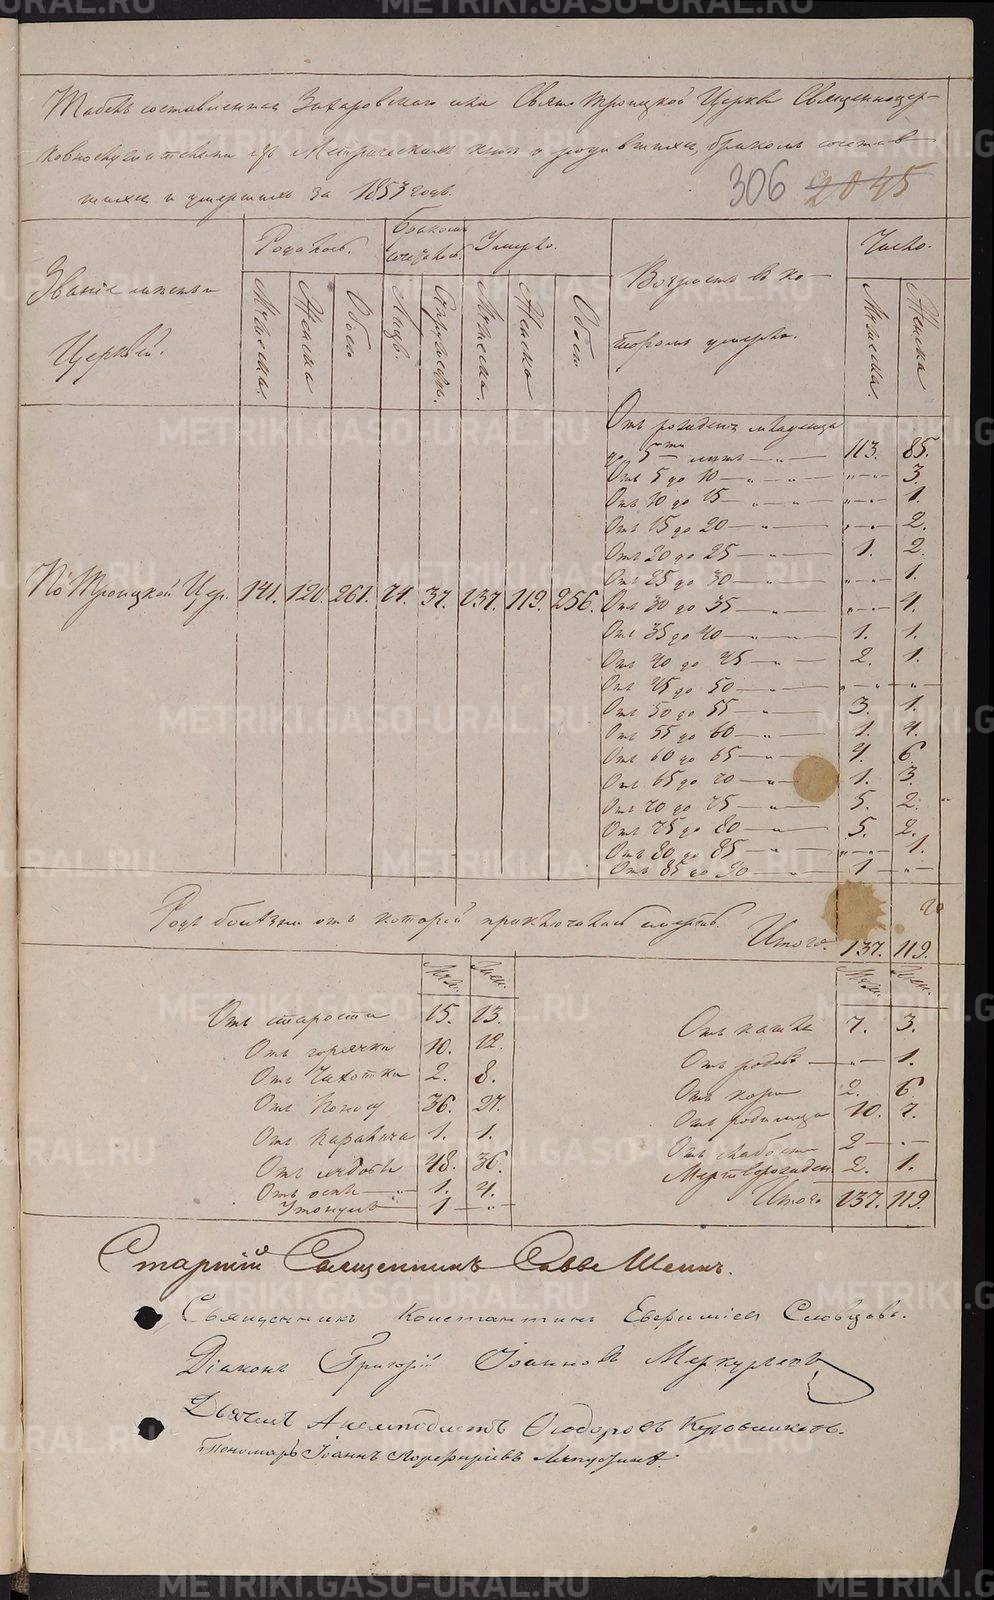 Табель составленная Захаровскаго села Свято Троицкой Церкви Священноцер-
ковнослужителями изъ Метрическихъ книгъ о родившихся, бракомъ сочетав-
шихся и умершихъ за 1853 годъ.
306 2045
Званіе
Церквей.
Родилось.
Бракомъ сочеталось.
Умерло.
Возрастъ въ ко-
торомъ умерли.
Число.
Мужеска.
Женска
Обоего
Лицъ.
Супружествъ.
Мужеска.
Женска
Обоего
Мужеска.
Женска
По Троицкой Цер. 141. 120. 261. 74. 37. 137. 119. 256.
Отъ рожденія младенца
до 5ти лѣтъ — „ — 113. 85.
Отъ 5 до 10 — „ — „ — „ — „ — 3.
Отъ 10 до 15 — „ — „ — „ — 1.
Отъ 15 до 20 — „ — „ — „ — 2.
Отъ 20 до 25 — „ — 1. 2.
Отъ 25 до 30 — „ — „ — „ — 1.
Отъ 30 до 35 — „ — „ — „ — 4.
Отъ 35 до 40 — „ — 1. 1.
Отъ 40 до 45 — „ — 2. 1.
Отъ 45 до 50 — „ — „ — „ — „ —
Отъ 50 до 55 — „ — 3. 1.
Отъ 55 до 60 — „ — 1. 4.
Отъ 60 до 65 — „ — 4. 6.
Отъ 65 до 70 — „ 1. 3.
Отъ 70 до 75 — „ — 5. 2.
Отъ 75 до 80 — „ — 5. 2.
Отъ 80 до 85 — „ — „ — „ — 1.
Отъ 85 до 90 — „ — 1 — „ —
Родъ болѣзни отъ которой приключилась смерть.
Итого. 137. 119.
Муж. Жен.
Муж. Жен.
Отъ старости 15. 13.
Отъ горячки 10. 12.
Отъ Чахотки 2. 8.
Отъ поносу 36. 27.
Отъ паралича 1. 1.
Отъ 48. 36.
Отъ оспы — „ — 1. 4.
Утонулъ 1 — „ —
Отъ кашля 7. 3.
Отъ родовъ — „ — 1.
Отъ кори 2. 6.
Отъ родимца 10. 7.
Отъ слабости 2 — „ —
Мертворожден. 2. 1.
Итого 137. 119.
Старшій Священникъ Савва Шеинъ.
Священникъ Константинъ Словцовъ.
Діаконъ Григорій Іоанновъ Меркурьевъ
Дьячекъ Ѳеодоровъ
Пономарь Іоаннъ Порфиріевъ
METRIKI.GASO-URAL.RU